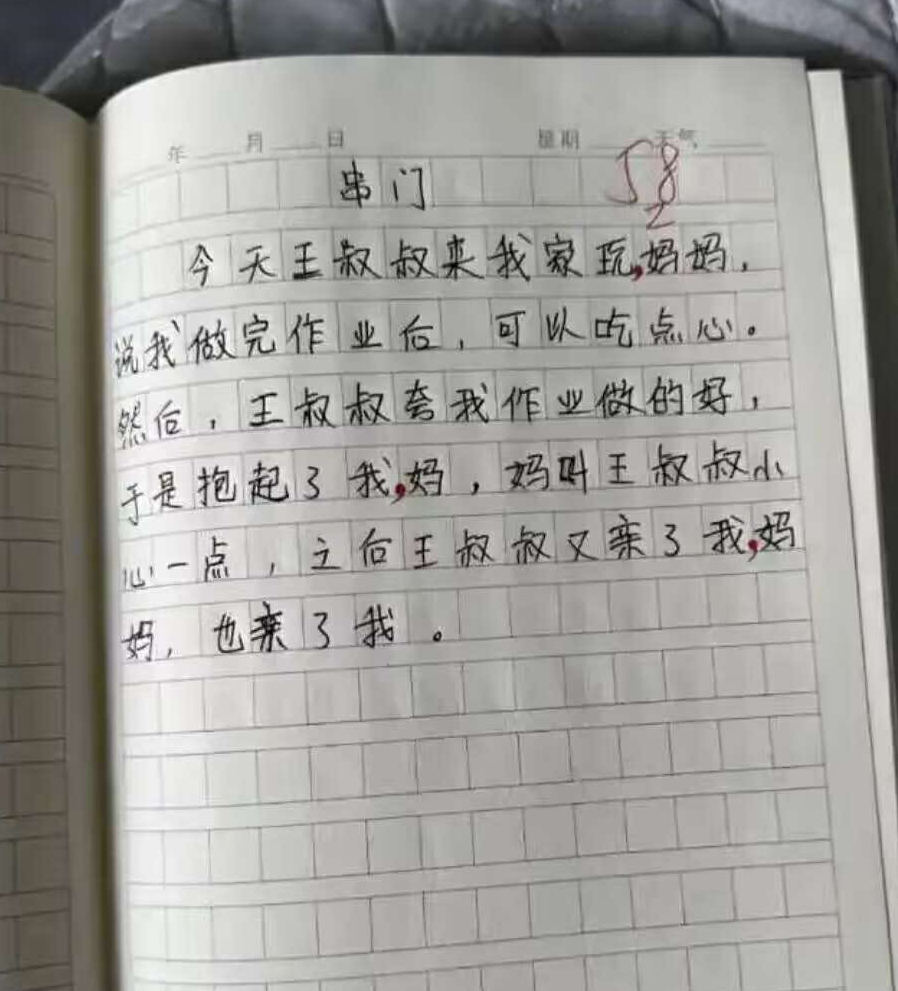 年 月 日 星期 天气
串门 58
2
今天王叔叔来我家玩,妈妈,
说我做完作业后,可以吃点心。
然后,王叔叔夸我作业做的好,
于是抱起了我,妈,妈叫王叔叔小
心一点,之后王叔叔又亲了我,妈
妈,也亲了我。